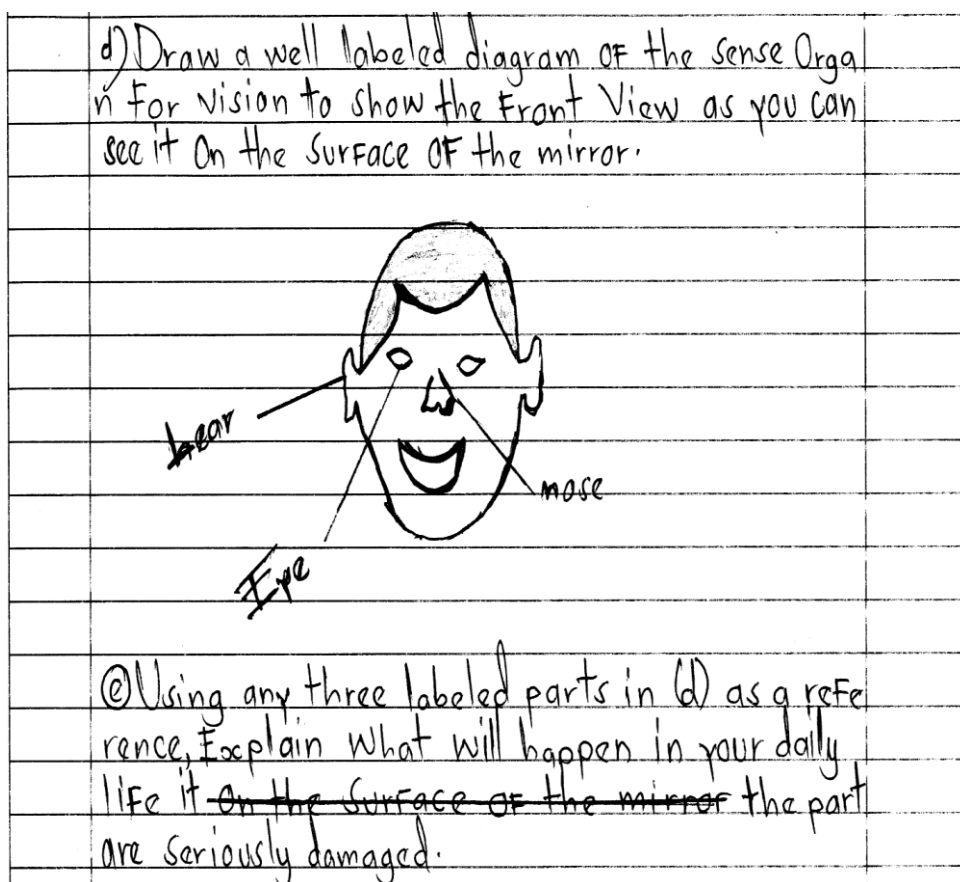 d) Draw a well labeled diagram OF the sense Orga
n For vision to show the Front View as you can
see it On the Surface OF the mirror.
hear
nose
Eye
(e) Using any three labeled parts in (d) as a reFe
rence, Explain What will happen in your daily
liFe it On the Surface OF the mirror the part
are seriously damaged.